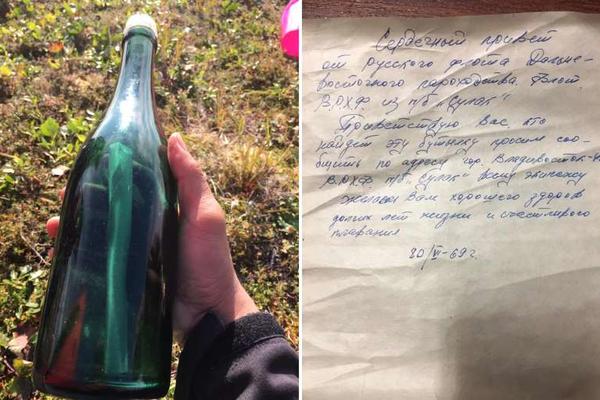 Сердечный привет
от русского флота Дальне-
восточного пароходства
ВРХФ из п/б "Сулак"
Приветствую Вас кто
найдет эту бутылку просим соо-
бщить по адресу гор. Владивосток-
ВРХФ п/б "Сулак" всему экипажу
желаем Вам хорошего здоров
долгих лет жизни и счастливого
плавания
20/VI-69г.